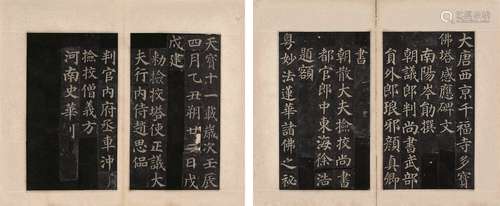 大唐西京千福寺多寶
佛塔感應碑文
南陽岑勛撰
朝議郎判尚書武部
員外郎琅邪顏真卿
書
朝散大夫撿校尚書
都官郎中東海徐浩
題額
粵妙法蓮華諸佛之秘
天寶十一載歲次壬辰
四月乙丑朔廿二日戊
戌建
勑撿挍塔使正議大
夫行內侍趙思偘
判官內府丞車沖
撿挍僧義方
河南史華刊